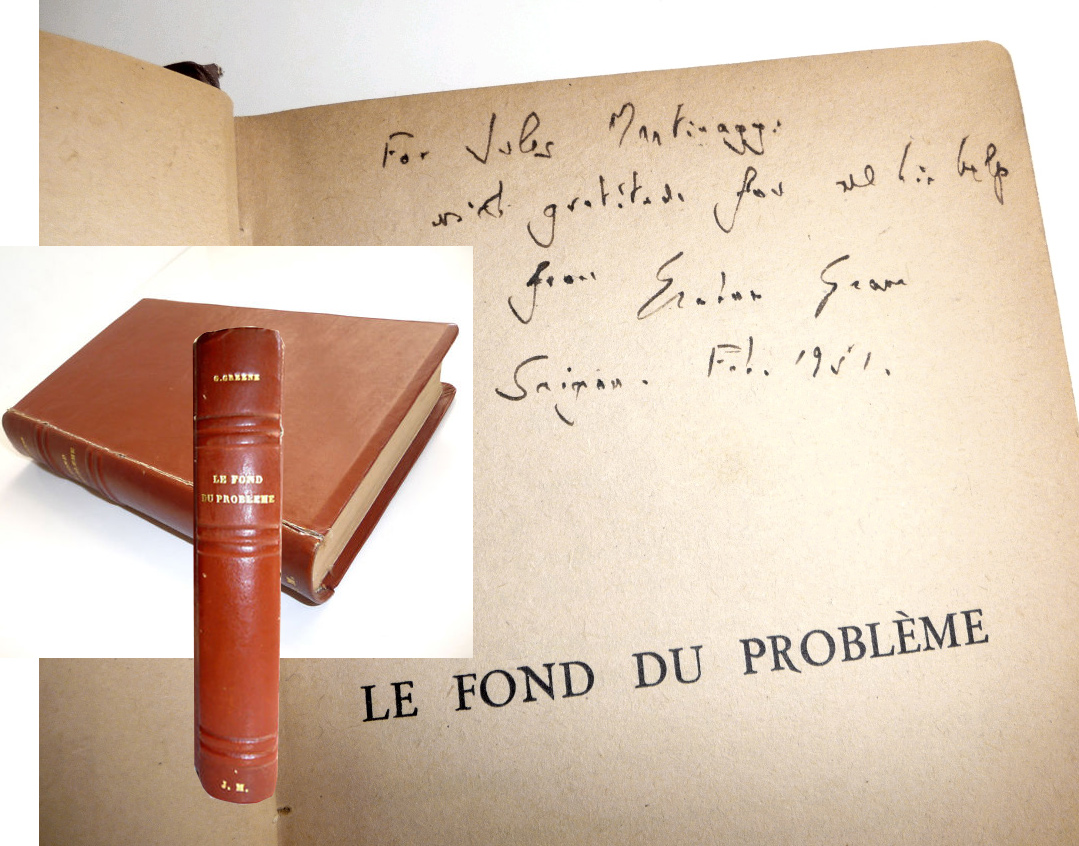 For Jules Martinaggi
with gratitude for all his help
from Graham Greene
Saigon. Feb. 1951.
LE FOND DU PROBLÈME
G. GREENE
LE FOND
DU PROBLÈME
J. M.